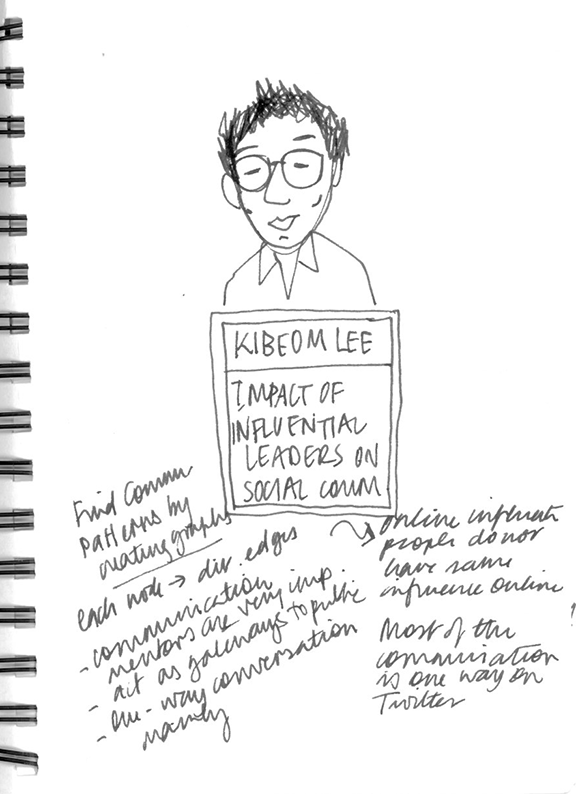 KIBEOM LEE
IMPACT OF
INFLUENTIAL
LEADERS ON
SOCIAL COMM
Find Commu
patterns by
creating graphs
each node → dir. edges
- communication
mentors are very imp.
- act as gateways to public
- one-way conversation
mainly
online
people do not
have same
influence online
Most of the
communication
is one way on
Twitter